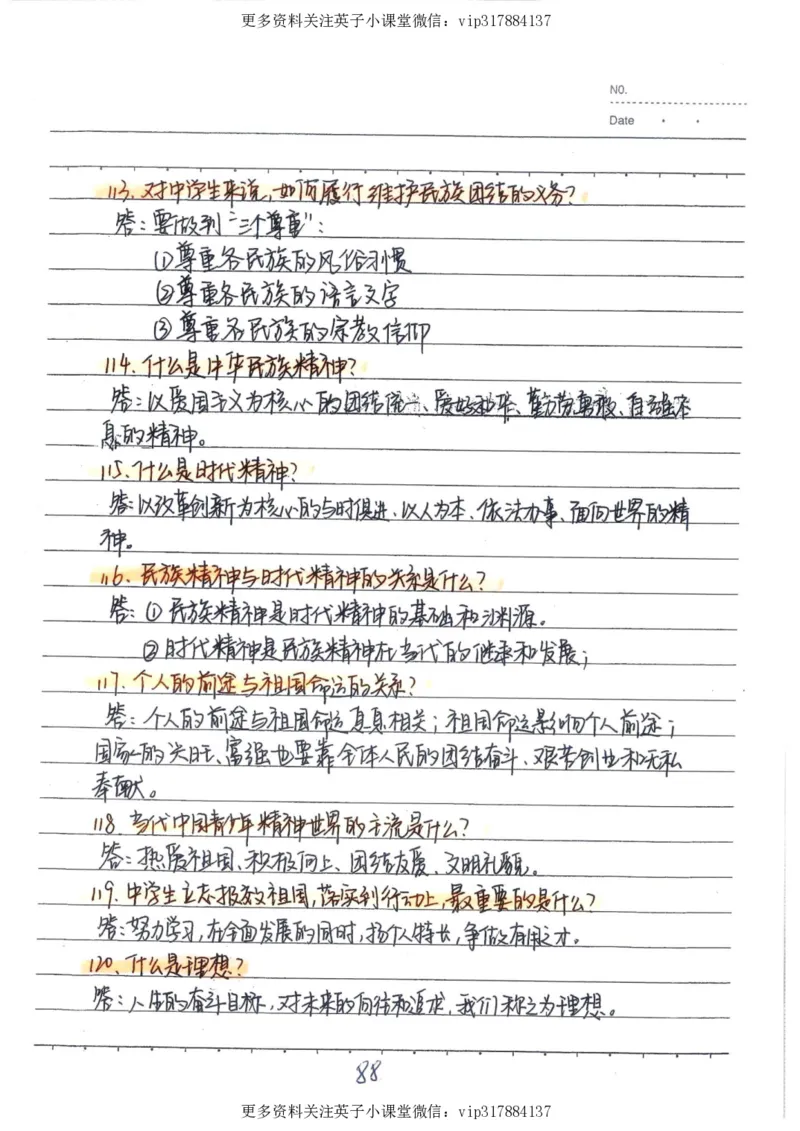 更多资料关注英子小课堂微信：vip317884137
NO.
Date
113. 对中学生来说，如何履行维护民族团结的义务？
答：要做到“三个尊重”：
①尊重各民族的风俗习惯
②尊重各民族的语言文字
③尊重各民族的宗教信仰
114. 什么是中华民族精神？
答：以爱国主义为核心的团结统一、爱好和平、勤劳勇敢、自强不
息的精神。
115、什么是时代精神？
答：以改革创新为核心的与时俱进、以人为本、依法办事、面向世界的精
神。
116、民族精神与时代精神的关系是什么？
答：①民族精神是时代精神的基础和渊源。
②时代精神是民族精神在当代的继承和发展；
117. 个人的前途与祖国命运的关系？
答：个人的前途与祖国命运息息相关；祖国命运影响个人前途；
国家的兴旺、富强也要靠全体人民的团结奋斗、艰苦创业和无私
奉献。
118. 当代中国青少年精神世界的主流是什么？
答：热爱祖国、积极向上、团结友爱、文明礼貌。
119. 中学生立志报效祖国，落实到行动上，最重要的是什么？
答：努力学习，在全面发展的同时，扬个人特长，争做有用之才。
120、什么是理想？
答：人生的奋斗目标，对未来的向往和追求，我们称之为理想。
88
更多资料关注英子小课堂微信：vip317884137